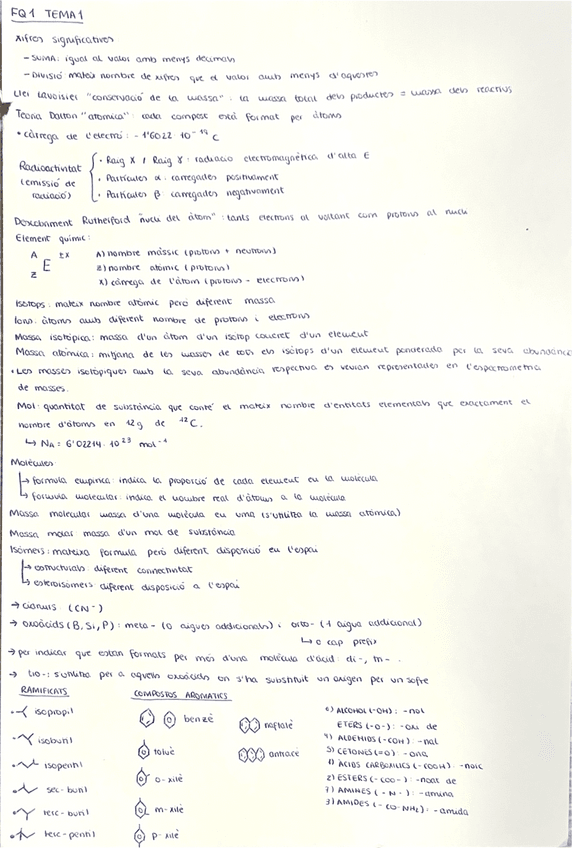 FQ1 TEMA 1
Xifres significatives
- SUMA: igual al valor amb menys decimals
- DIVISIÓ: mateix nombre de xifres que el valor amb menys d'aquestes
Llei Lavoisier "conservació de la massa": la massa total dels productes = massa dels reactius
Teoria Dalton "atòmica": cada compost està format per àtoms
• càrrega de l'electró: -1'6022·10⁻¹⁹ C
Radioactivitat (emissió de radiació)
• Raig X / Raig γ: radiació electromagnètica d'alta E
• Partícules α: carregades positivament
• Partícules β carregades negativament
Descobriment Rutherford "nucli del àtom": tants electrons al voltant com protons al nucli
Element químic:
A ±X A) nombre màssic (protons + neutrons)
E
Z Z) nombre atòmic (protons)
X) càrrega de l'àtom (protons - electrons)
Isòtops: mateix nombre atòmic però diferent massa
Ions: àtoms amb diferent nombre de protons i electrons
Massa isotòpica: massa d'un àtom d'un isòtop concret d'un element
Massa atòmica: mitjana de les masses de tots els isòtops d'un element ponderada per la seva abundància
• Les masses isotòpiques amb la seva abundància respectiva es veuran representades en l'espectrometria
de masses.
Mol: quantitat de substància que conté el mateix nombre d'entitats elementals que exactament el
nombre d'àtoms en 12g de ¹²C.
↳ NA = 6'02214·10²³ mol⁻¹
Molècules:
↳ fórmula empírica: indica la proporció de cada element en la molècula
↳ fórmula molecular: indica el nombre real d'àtoms a la molècula
Massa molecular: massa d'una molècula en uma (s'utilitza la massa atòmica)
Massa molar: massa d'un mol de substància
Isòmers: mateixa fórmula però diferent disposició en l'espai
↳ estructurals: diferent connectivitat
↳ esteroisòmers: diferent disposició a l'espai
→ cianurs (CN⁻)
→ oxoàcids (B, Si, P): meta- (0 aigues addicionals) i orto- (1 aigua addicional)
↳ o cap prefix
→ per indicar que estan formats per més d'una molècula d'àcid: di-, tri-.
→ tio-: s'utilitza per a aquells oxoàcids on s'ha substituït un oxigen per un sofre
RAMIFICATS
isopropil
isobutil
isopentil
sec-butil
terc-butil
terc-pentil
COMPOSTOS AROMÀTICS
benzè
toluè
o-xilè
m-xilè
p-xilè
naftalè
antracè
6) ALCOHOL (-OH): -nol
ETERS (-O-): -oxi de
4) ALDEHIDS (-COH): -nal
5) CETONES (=O): -ona
1) ÀCIDS CARBOXÍLICS (-COOH): -noic
2) ESTERS (-COO-): -noat de
7) AMINES (-N-): -amina
3) AMIDES (-CO-NH₂): -amida